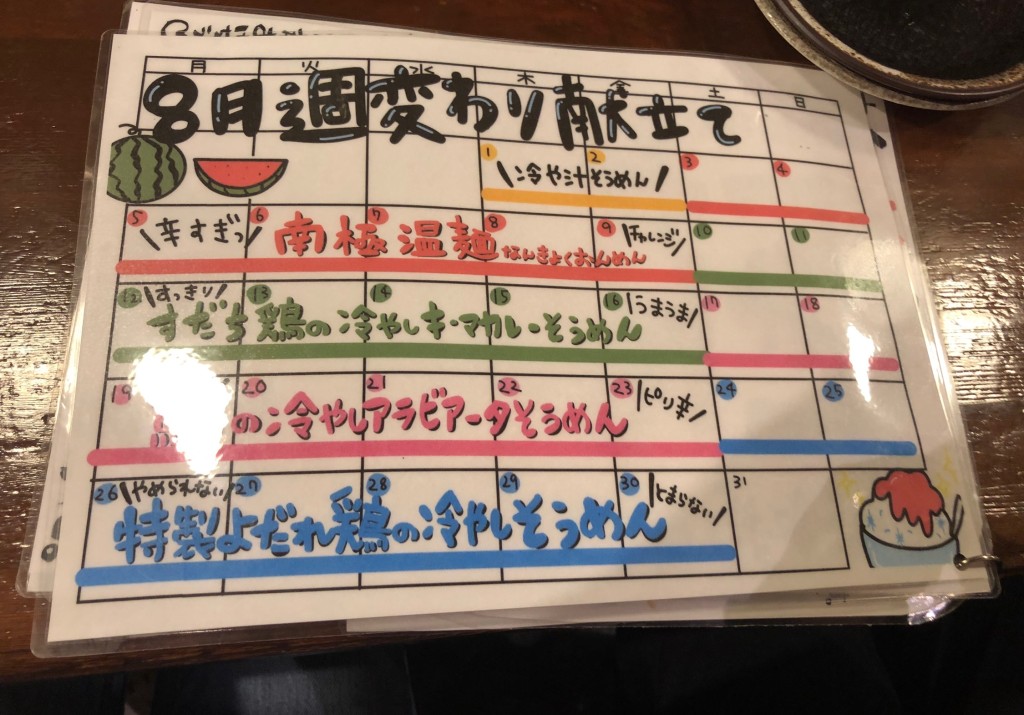 月 火 水 木 金 土 日
8月週変わり献立て
1 2 3 4
冷や汁そうめん
5 6 7 8 9 10 11
辛すぎっ 南極温麺 なんきょくおんめん チャレンジ
12 13 14 15 16 17 18
すっきり うまうま
すだち鶏の冷やしキーマカレーそうめん
19 20 21 22 23 24 25
の冷やしアラビアータそうめん ピリ辛
26 27 28 29 30 31
やめられない とまらない
特製よだれ鶏の冷やしそうめん